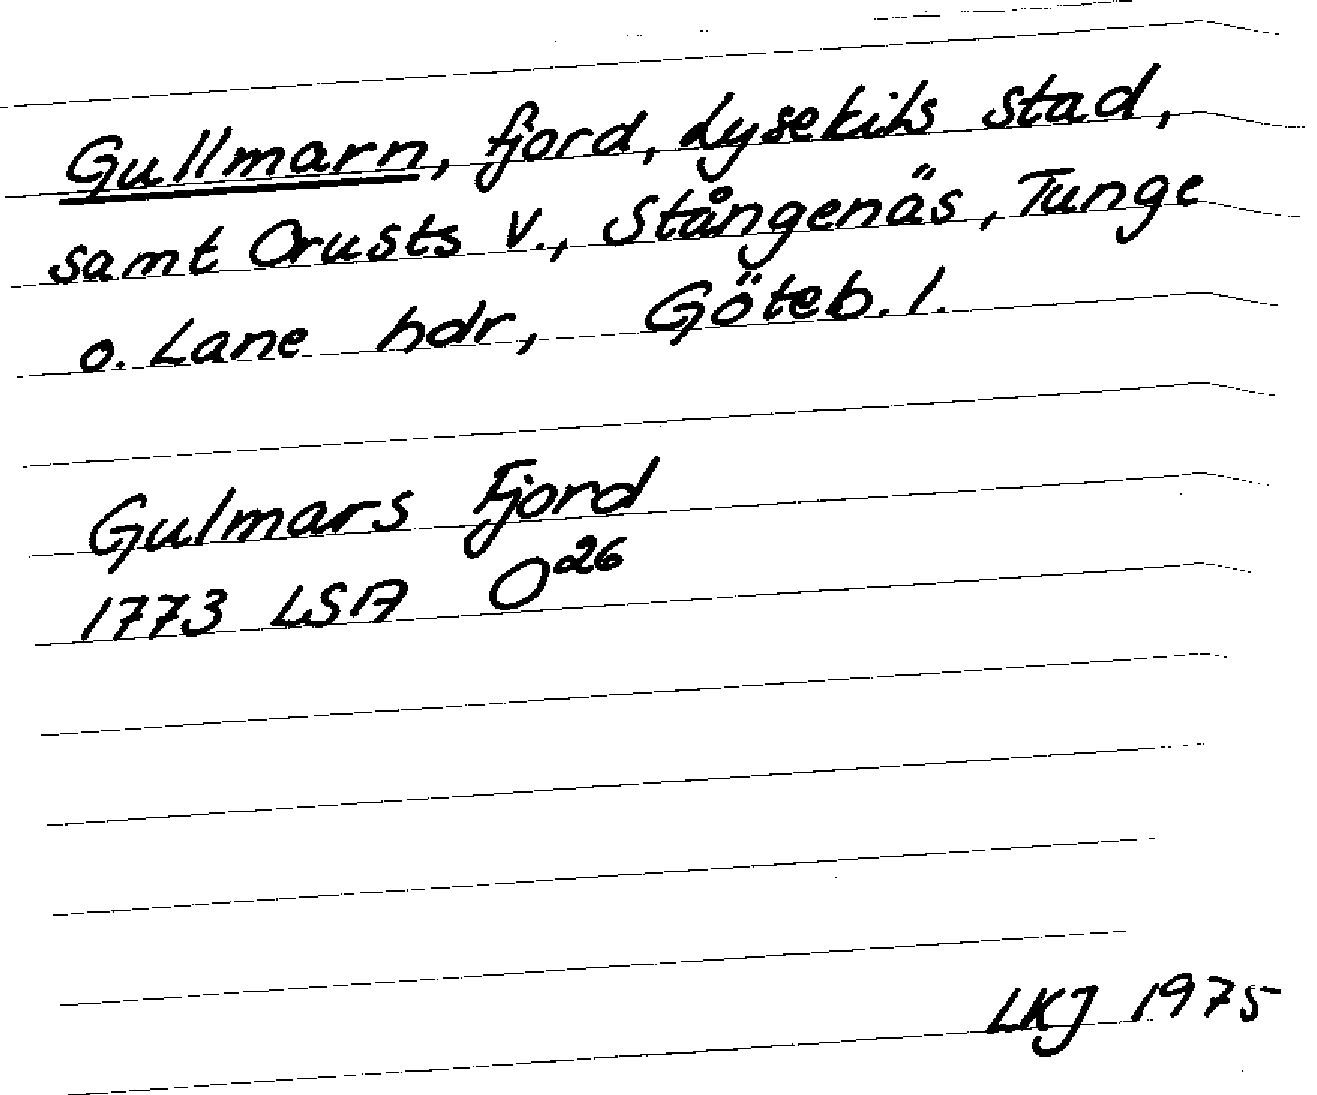 Gullmarn, fjord, Lysekils stad,
samt Orusts V., Stångenäs, Tunge
o. Lane hdr, Göteb. l.
Gulmars Fjord
1773 LSA O26
LKJ 1975